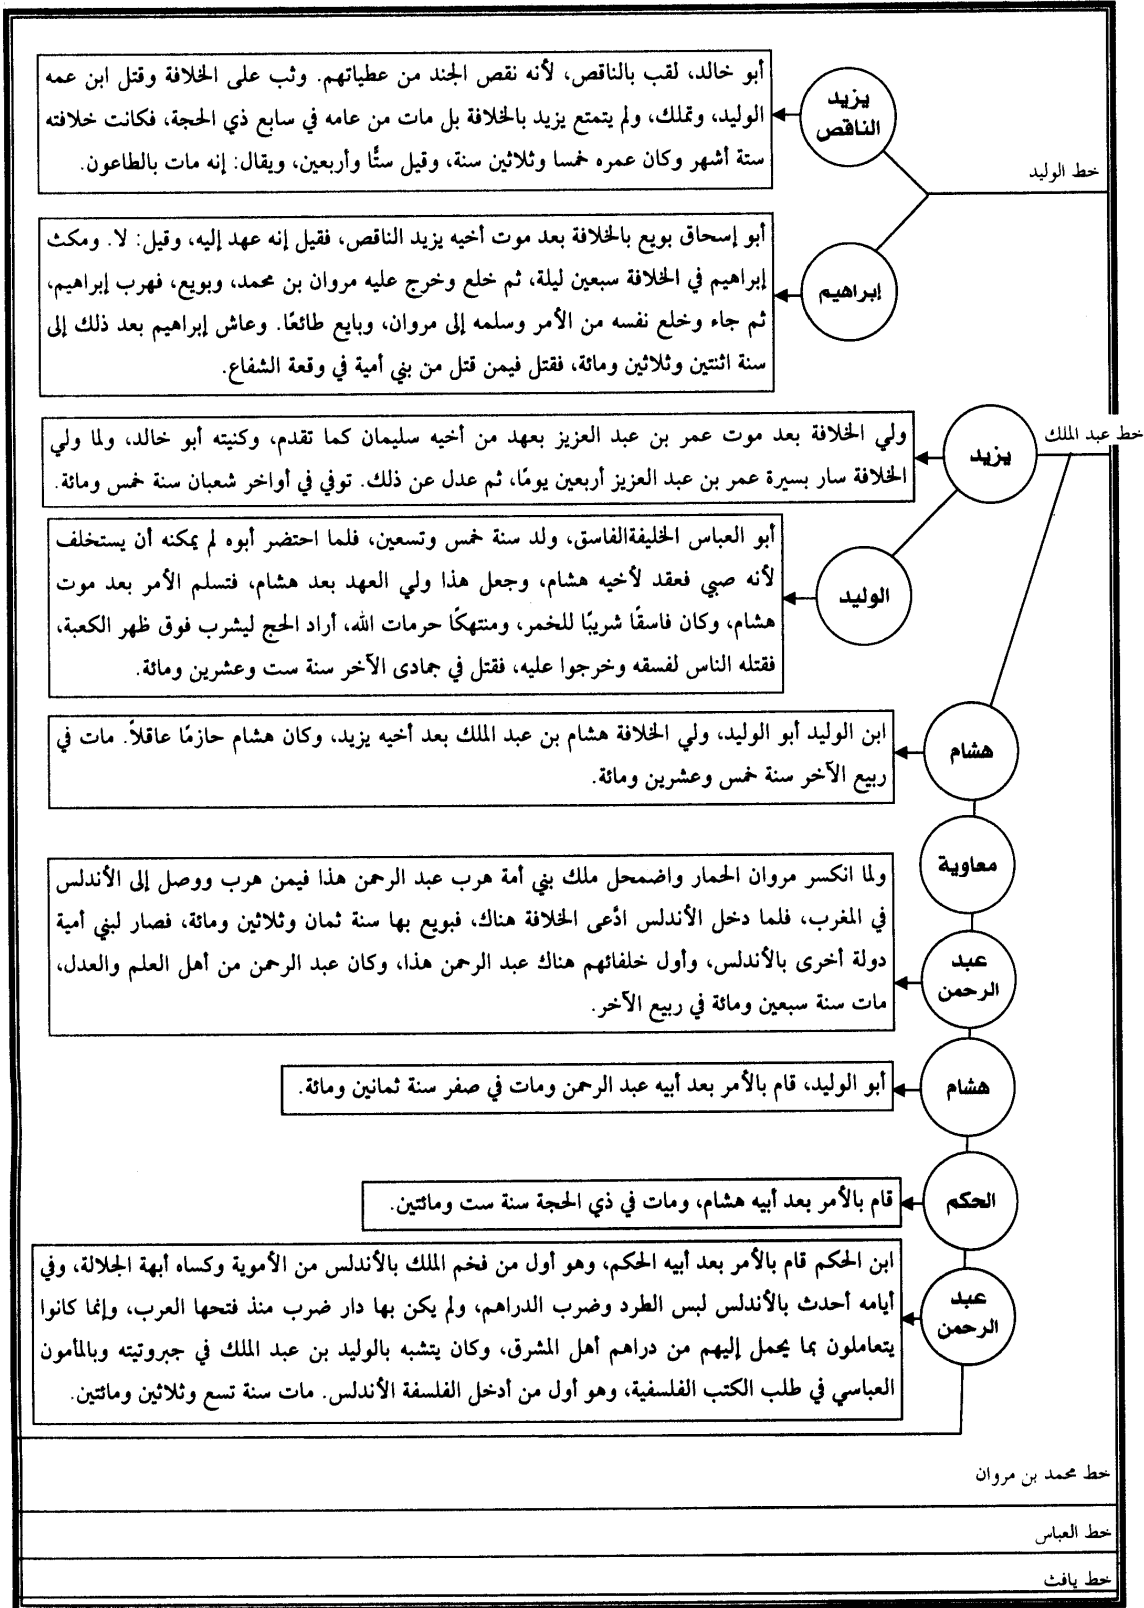 خط الوليد
يزيد
الناقص
أبو خالد، لقب بالناقص، لأنه نقص الجند من عطياتهم. وثب على الخلافة وقتل ابن عمه
الوليد، وتملك، ولم يتمتع يزيد بالخلافة بل مات من عامه في سابع ذي الحجة، فكانت خلافته
ستة أشهر وكان عمره خمسا وثلاثين سنة، وقيل ستًّا وأربعين، ويقال: إنه مات بالطاعون.
إبراهيم
أبو إسحاق بويع بالخلافة بعد موت أخيه يزيد الناقص، فقيل إنه عهد إليه، وقيل: لا. ومكث
إبراهيم في الخلافة سبعين ليلة، ثم خلع وخرج عليه مروان بن محمد، وبويع، فهرب إبراهيم،
ثم جاء وخلع نفسه من الأمر وسلمه إلى مروان، وبايع طائعًا. وعاش إبراهيم بعد ذلك إلى
سنة اثنتين وثلاثين ومائة، فقتل فيمن قتل من بني أمية في وقعة الشفاع.
خط عبد الملك
يزيد
ولي الخلافة بعد موت عمر بن عبد العزيز بعهد من أخيه سليمان كما تقدم، وكنيته أبو خالد، ولما ولي
الخلافة سار بسيرة عمر بن عبد العزيز أربعين يومًا، ثم عدل عن ذلك. توفي في أواخر شعبان سنة خمس ومائة.
الوليد
أبو العباس الخليفةالفاسق، ولد سنة خمس وتسعين، فلما احتضر أبوه لم يمكنه أن يستخلف
لأنه صبي فعقد لأخيه هشام، وجعل هذا ولي العهد بعد هشام، فتسلم الأمر بعد موت
هشام، وكان فاسقًا شريبًا للخمر، ومنتهكًا حرمات الله، أراد الحج ليشرب فوق ظهر الكعبة،
فقتله الناس لفسقه وخرجوا عليه، فقتل في جمادى الآخر سنة ست وعشرين ومائة.
هشام
ابن الوليد أبو الوليد، ولي الخلافة هشام بن عبد الملك بعد أخيه يزيد، وكان هشام حازمًا عاقلاً. مات في
ربيع الآخر سنة خمس وعشرين ومائة.
معاوية
عبد
الرحمن
ولما انكسر مروان الحمار واضمحل ملك بني أمة هرب عبد الرحمن هذا فيمن هرب ووصل إلى الأندلس
في المغرب، فلما دخل الأندلس ادَّعى الخلافة هناك، فبويع بها سنة ثمان وثلاثين ومائة، فصار لبني أمية
دولة أخرى بالأندلس، وأول خلفائهم هناك عبد الرحمن هذا، وكان عبد الرحمن من أهل العلم والعدل،
مات سنة سبعين ومائة في ربيع الآخر.
هشام
أبو الوليد، قام بالأمر بعد أبيه عبد الرحمن ومات في صفر سنة ثمانين ومائة.
الحكم
قام بالأمر بعد أبيه هشام، ومات في ذي الحجة سنة ست ومائتين.
عبد
الرحمن
ابن الحكم قام بالأمر بعد أبيه الحكم، وهو أول من فخم الملك بالأندلس من الأموية وكساه أبهة الجلالة، وفي
أيامه أحدث بالأندلس لبس الطرد وضرب الدراهم، ولم يكن بها دار ضرب منذ فتحها العرب، وإنما كانوا
يتعاملون بما يحمل إليهم من دراهم أهل المشرق، وكان يتشبه بالوليد بن عبد الملك في جبروتيته وبالمأمون
العباسي في طلب الكتب الفلسفية، وهو أول من أدخل الفلسفة الأندلس. مات سنة تسع وثلاثين ومائتين.
خط محمد بن مروان
خط العباس
خط يافث